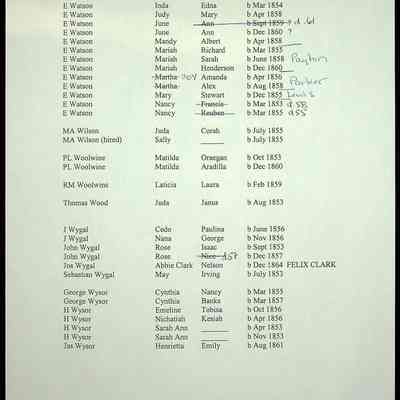 E Watson Inda Edna b Mar 1854
E Watson Judy Mary b Apr 1858
E Watson June Ann b Sept 1859 ? d. 61
E Watson June Ann b Dec 1860 ?
E Watson Mandy Albert b Apr 1858
E Watson Mariah Richard b Mar 1855
E Watson Mariah Sarah b June 1858 Payton
E Watson Mariah Henderson b Dec 1860
E Watson Martha Amanda b Apr 1856
E Watson Martha Alex b Aug 1858 Parker
E Watson Mary Stewart b Dec 1855 Lewis
E Watson Nancy Francis b Mar 1853 d 58
E Watson Nancy Reuben b Mar 1855 d 55
MA Wilson Juda Corah b July 1855
MA Wilson (hired) Sally _____ b July 1855
PL Woolwine Matilda Orangan b Oct 1853
PL Woolwine Matilda Aradilla b Dec 1860
RM Woolwine Laticia Laura b Feb 1859
Thomas Wood Juda Janua b Aug 1853
J Wygal Cedo Paulina b June 1856
J Wygal Nana George b Nov 1856
John Wygal Rose Isaac b Sept 1853
John Wygal Rose Nice d 57 b Dec 1857
Jas Wygal Abbie Clark Nelson b Dec 1864 FELIX CLARK
Sebastian Wygal May Irving b July 1853
George Wysor Cynthia Nancy b Mar 1855
George Wysor Cynthia Banks b Mar 1857
H Wysor Emeline Tobina b Oct 1856
H Wysor Nichatiah Keziah b Apr 1856
H Wysor Sarah Ann _____ b Apr 1853
H Wysor Sarah Ann _____ b Nov 1853
Jas Wysor Henrietta Emily b Aug 1861